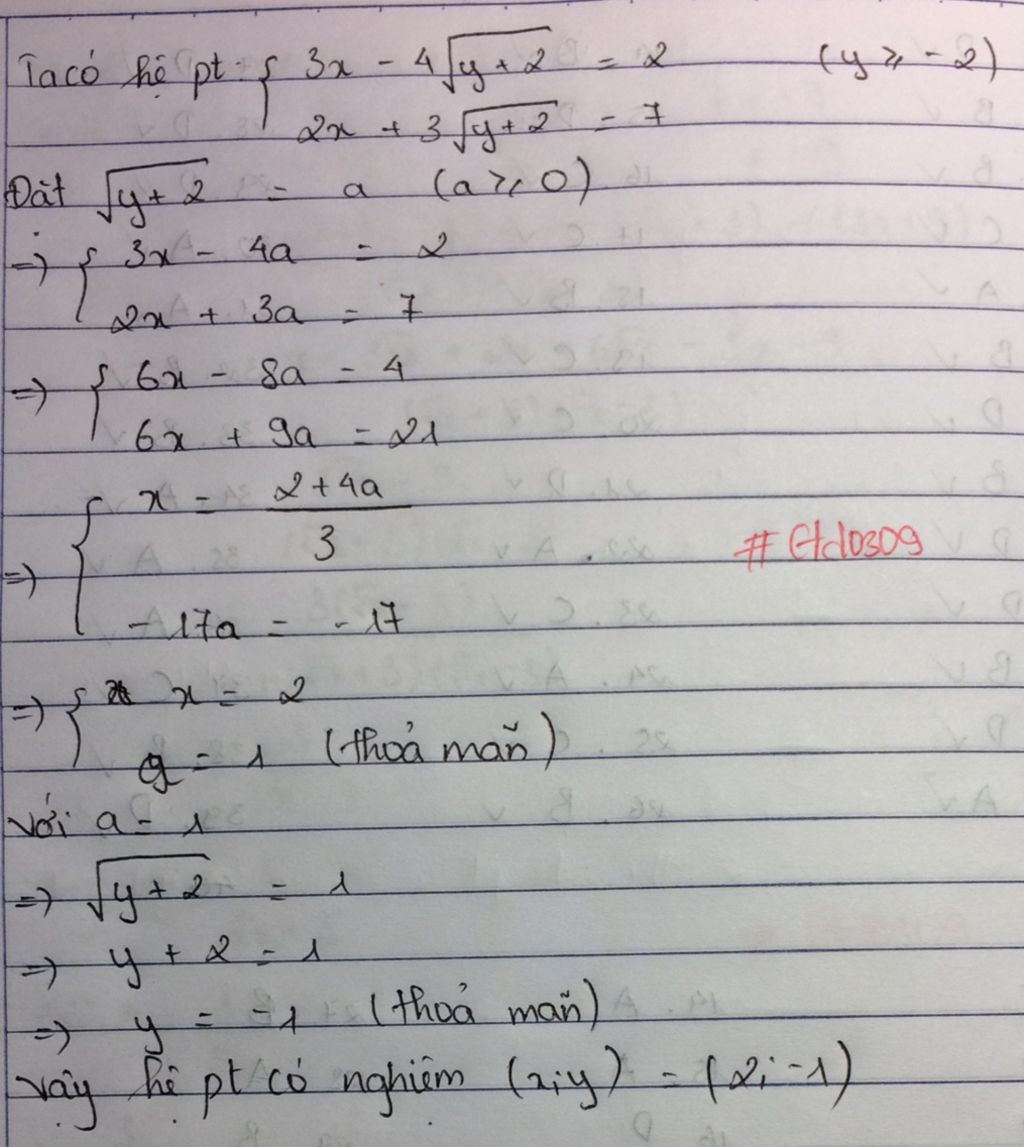 Ta có hệ pt { 3x - 4√(y+2) = 2 (y ⩾ -2)
2x + 3√(y+2) = 7
Đặt √(y+2) = a (a ⩾ 0)
=> { 3x - 4a = 2
2x + 3a = 7
=> { 6x - 8a = 4
6x + 9a = 21
=> { x = (2+4a)/3
-17a = -17
#Gtd0309
=> { x = 2
a = 1 (thoả mãn)
với a = 1
=> √(y+2) = 1
=> y + 2 = 1
=> y = -1 (thoả mãn)
vậy hệ pt có nghiệm (x;y) = (2;-1)